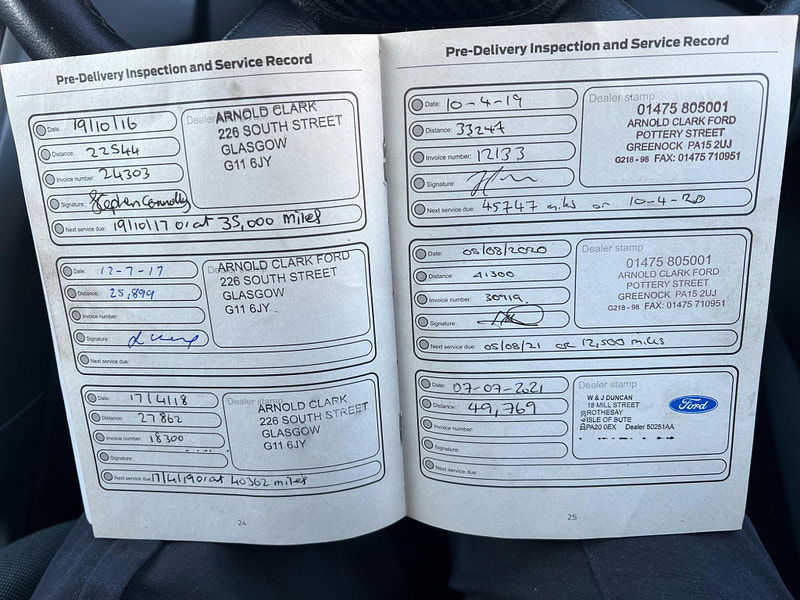 Pre-Delivery Inspection and Service Record
Date: 19/10/16
Distance: 22544
Invoice number: 24303
Signature: Stephen Connolly
Next service due: 19/10/17 or at 35,000 Miles
Dealer stamp
ARNOLD CLARK
226 SOUTH STREET
GLASGOW
G11 6JY
Date: 12-7-17
Distance: 25,899
Invoice number:
Signature:
Next service due:
Dealer stamp
ARNOLD CLARK FORD
226 SOUTH STREET
GLASGOW
G11 6JY
Date: 17/4/18
Distance: 27862
Invoice number: 18300
Signature:
Next service due: 17/4/19 or at 40362 miles
Dealer stamp
ARNOLD CLARK
226 SOUTH STREET
GLASGOW
G11 6JY
24
Pre-Delivery Inspection and Service Record
Date: 10-4-19
Distance: 33247
Invoice number: 12133
Signature:
Next service due: 45747 miles or 10-4-20
Dealer stamp
01475 805001
ARNOLD CLARK FORD
POTTERY STREET
GREENOCK PA15 2UJ
G218 - 98 FAX: 01475 710951
Date: 05/08/2020
Distance: 41300
Invoice number:
Signature:
Next service due: 05/08/21 or 12,500 miles
Dealer stamp
01475 805001
ARNOLD CLARK FORD
POTTERY STREET
GREENOCK PA15 2UJ
G218 - 98 FAX: 01475 710951
Date: 07-07-2021
Distance: 49,769
Invoice number:
Signature:
Next service due:
Dealer stamp
W & J DUNCAN
18 MILL STREET
ROTHESAY
ISLE OF BUTE
PA20 0EX Dealer 50251AA
Ford
25